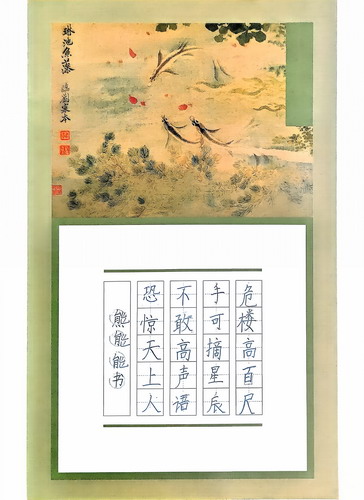 琳池魚藻
臨劉寀本
危楼高百尺
手可摘星辰
不敢高声语
恐惊天上人
熊能能书